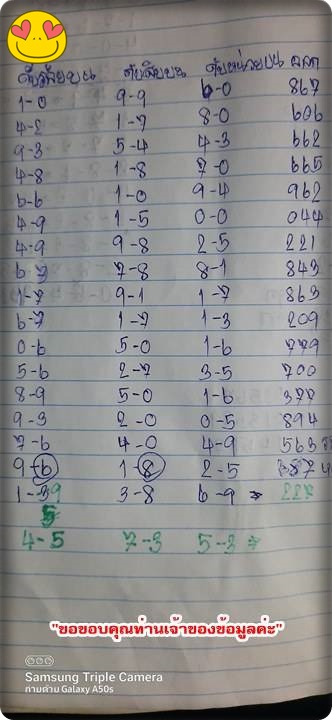 ดับร้อยบน ดับสิบบน ดับหน่วยบน ผลก
1-0 9-9 6-0 867
4-8 1-7 8-0 606
9-3 5-4 4-3 662
4-8 1-8 7-0 665
6-6 1-0 9-4 962
4-9 1-5 0-0 044
4-9 9-8 2-5 221
6-7 7-8 8-1 843
1-7 9-1 1-7 863
6-7 1-7 1-3 209
0-6 5-0 1-6 779
5-6 2-7 3-5 700
8-9 5-0 1-6 377
9-3 2-0 0-5 894
7-6 4-0 4-9 563
9-6 1-8 2-5 874
1-39 3-8 6-9 = 227
5
4-5 7-3 5-3 =
"ขอขอบคุณท่านเจ้าของข้อมูลค่ะ"
Samsung Triple Camera
ถ่ายด้วย Galaxy A50s